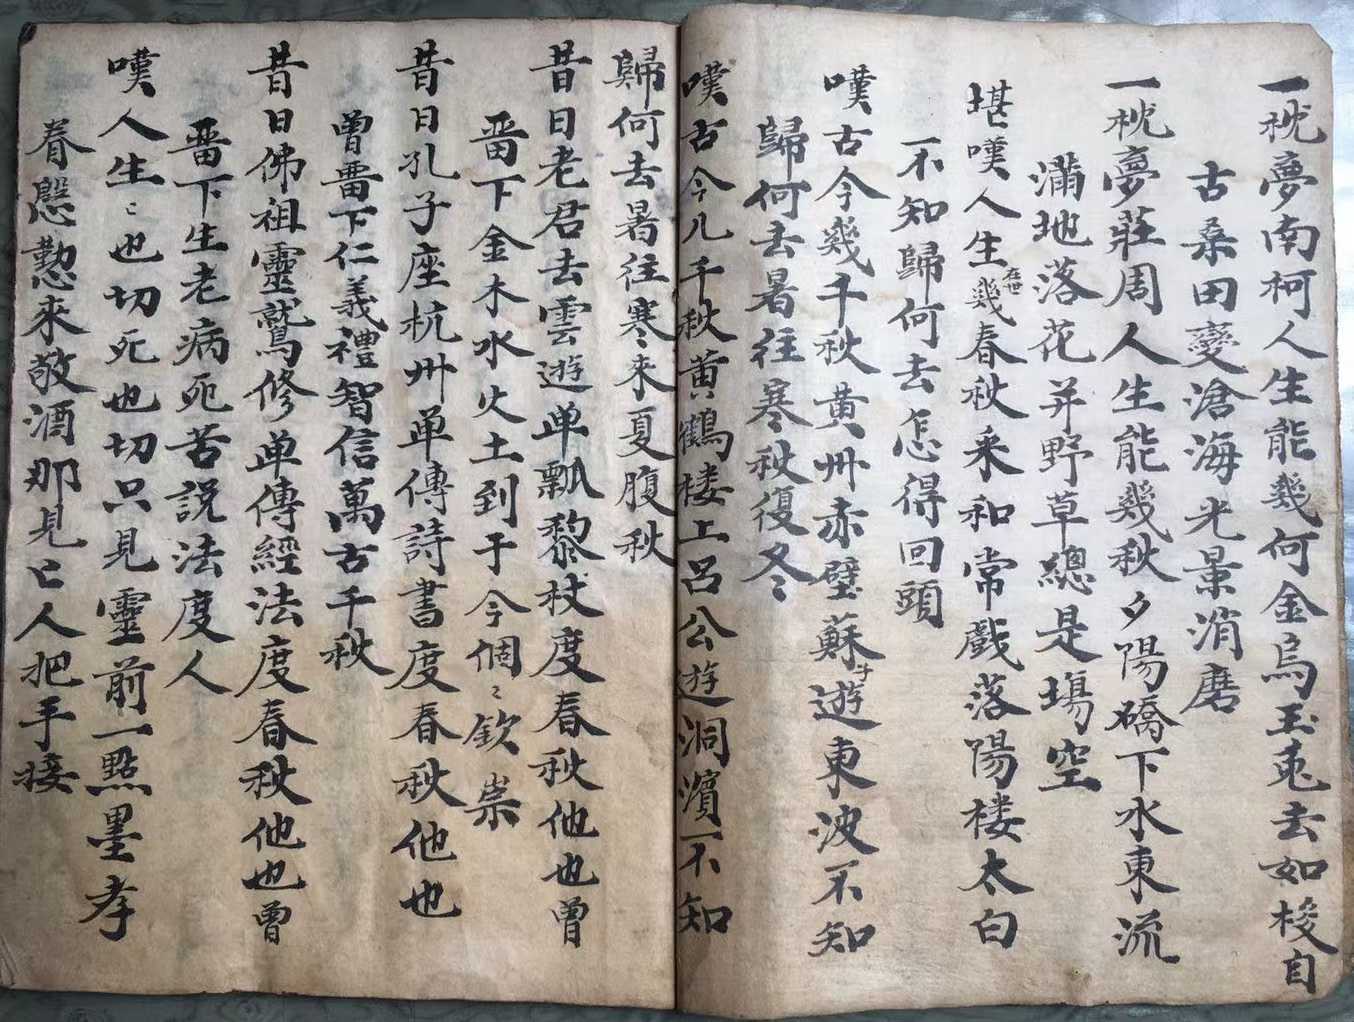 一枕夢南柯人生能幾何金烏玉兎去如梭自
古桑田變滄海光景消磨
一枕夢莊周人生能幾秋夕陽磂下水東流
滿地落花并野草總是塲空
堪嘆人生在世幾春秋来和常戲落陽楼太白
不知歸何去怎得回頭
嘆古今幾千秋黄州赤壁蘇子遊東波不知
歸何去暑往寒秋復冬
嘆古今几千秋黄鶴楼上呂公遊洞濱不知
歸何去暑往寒来夏腹秋
昔日老君去雲遊单瓢藜杖度春秋他也曽
畱下金木水火土到于今個〻欽崇
昔日孔子座杭州单傳詩書度春秋他也
曽畱下仁義禮智信萬古千秋
昔日佛祖靈鷲修单傳經法度春秋他也曽
畱下生老病死苦説法度人
嘆人生〻也切死也切只見靈前一點墨孝
眷慇懃来敬酒那見亡人把手接